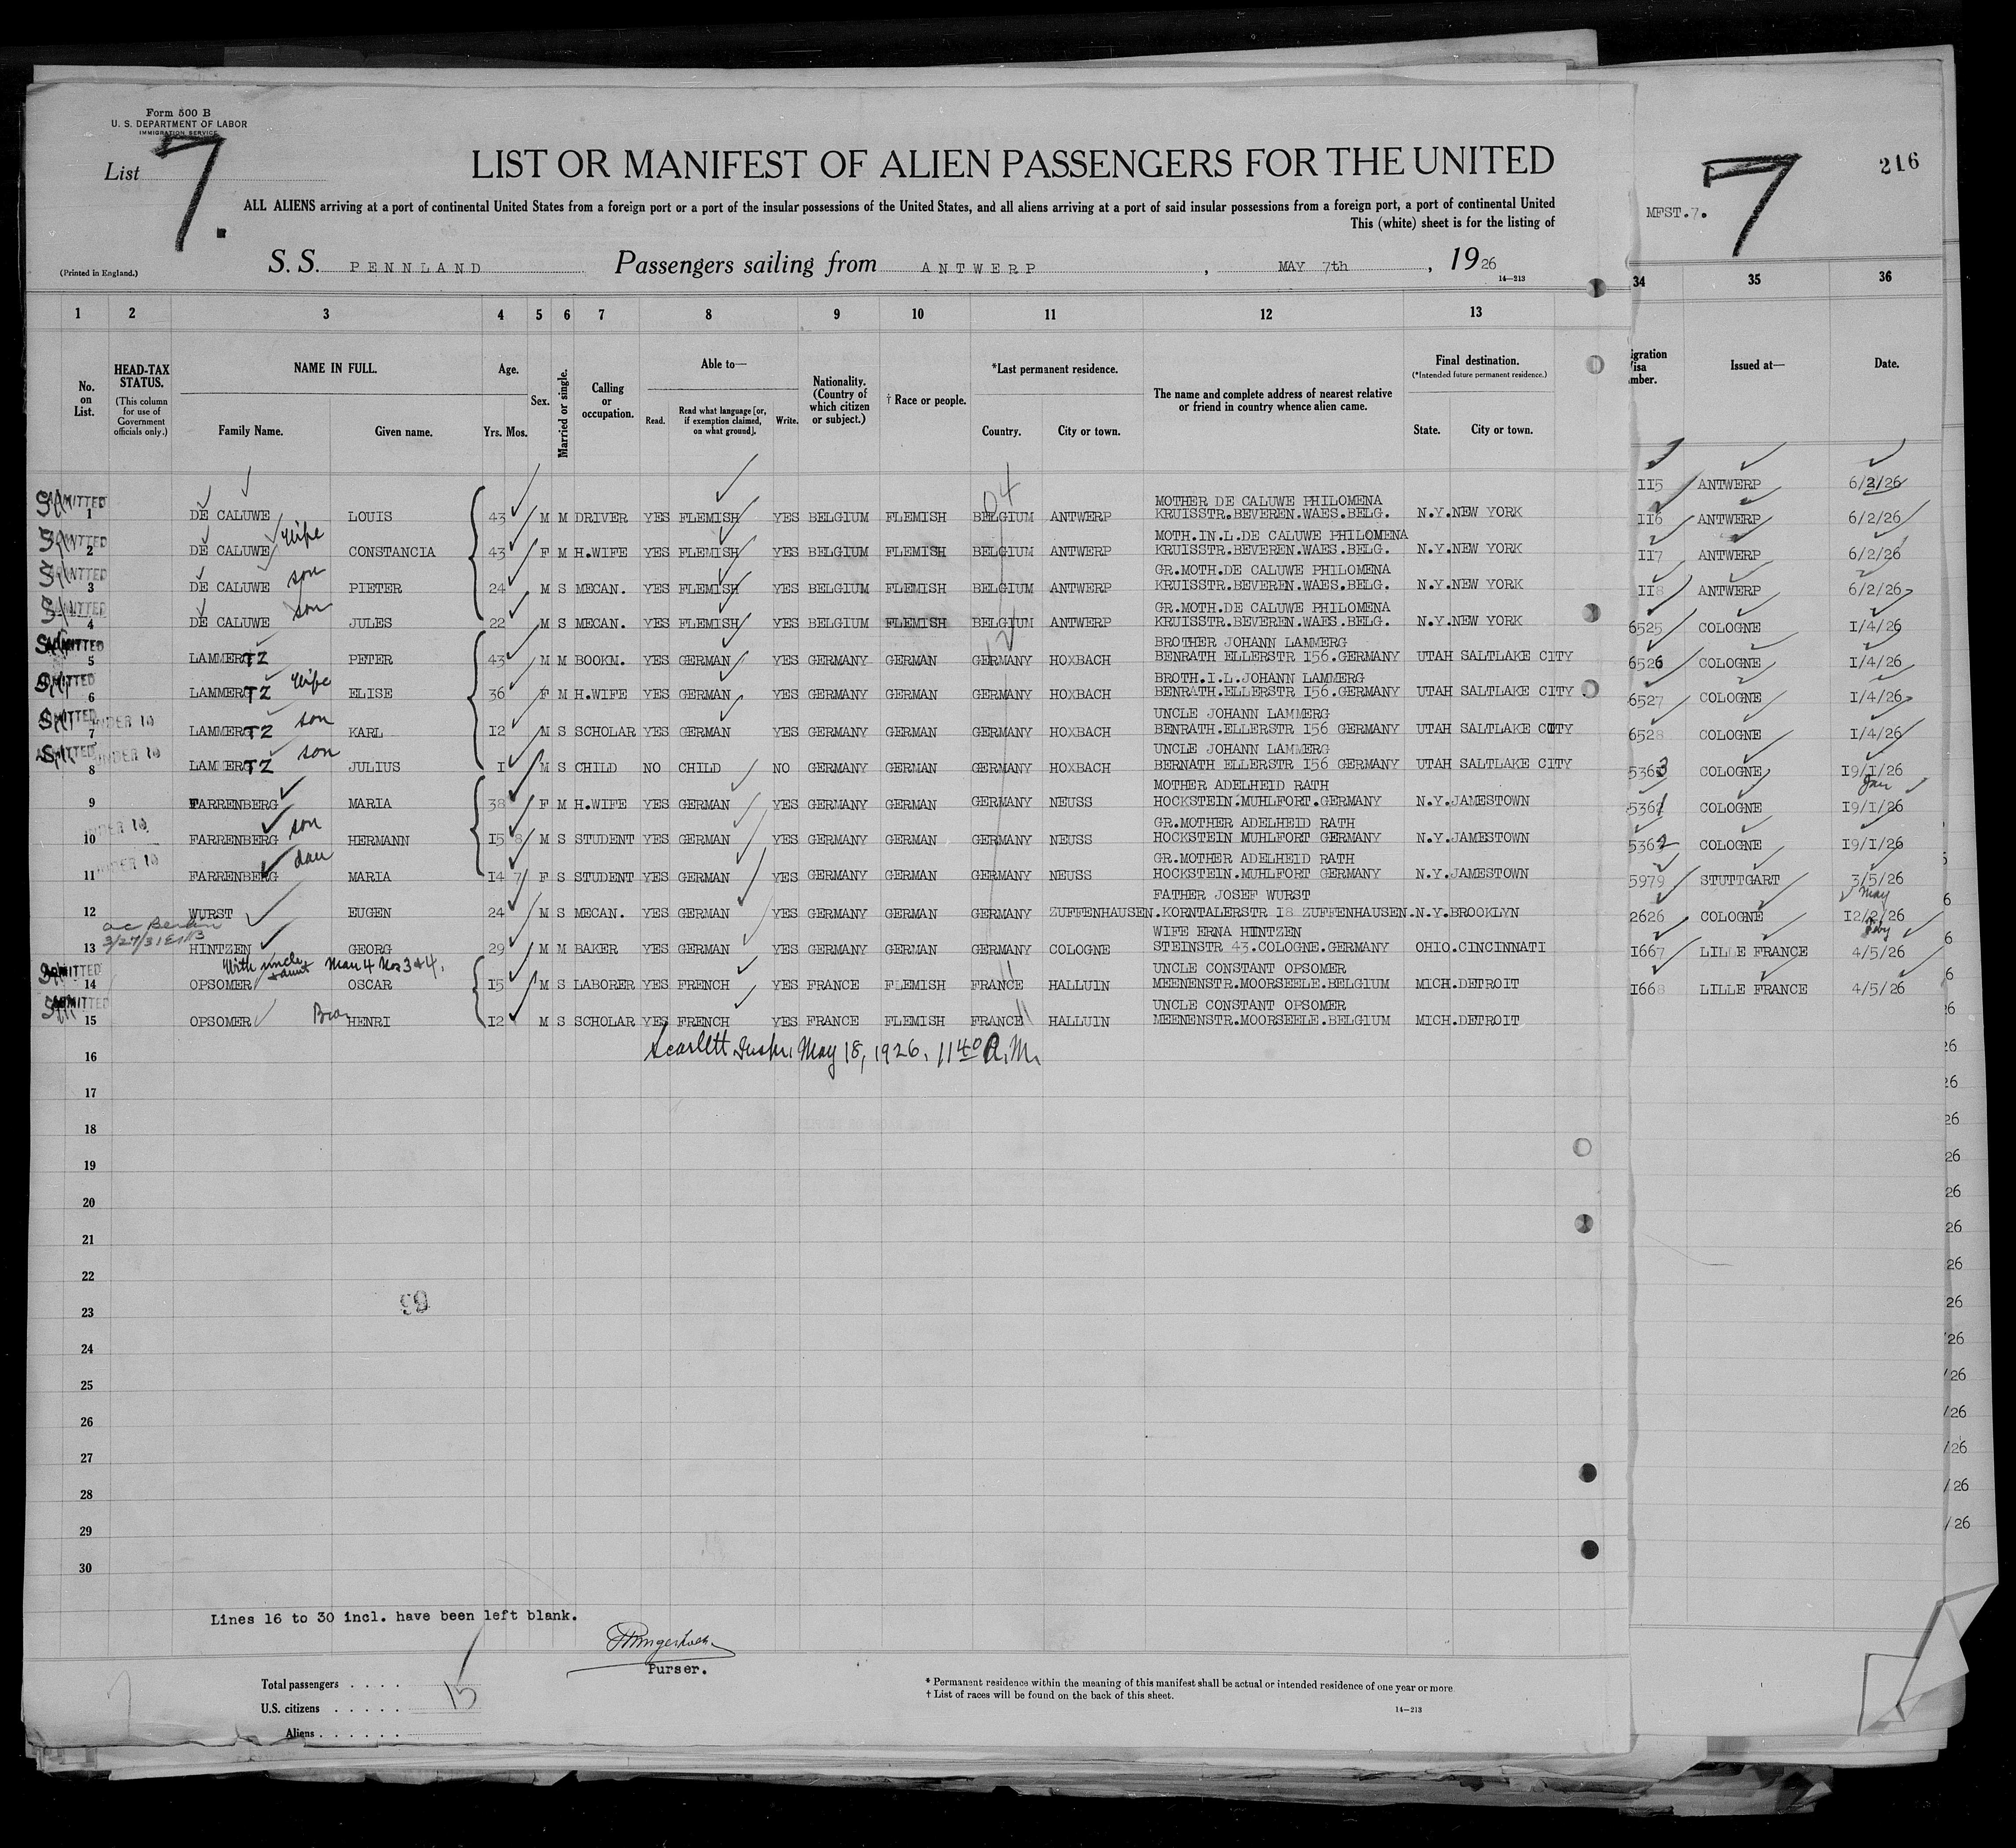 Form 500 B
U. S. DEPARTMENT OF LABOR
IMMIGRATION SERVICE
List 7.
LIST OR MANIFEST OF ALIEN PASSENGERS FOR THE UNITED
ALL ALIENS arriving at a port of continental United States from a foreign port or a port of the insular possessions of the United States, and all aliens arriving at a port of said insular possessions from a foreign port, a port of continental United
This (white) sheet is for the listing of
(Printed in England.)
S. S. PENNLAND Passengers sailing from ANTWERP, MAY 7th, 1926
14—213
MFST.7. 7 216
1 2 3 4 5 6 7 8 9 10 11 12 13 34 35 36
No. on List.
HEAD-TAX STATUS.
(This column for use of Government officials only.)
NAME IN FULL.
Family Name. Given name.
Age.
Yrs. Mos.
Sex.
Married or single.
Calling or occupation.
Able to—
Read. Read what language [or, if exemption claimed, on what ground]. Write.
Nationality. (Country of which citizen or subject.)
† Race or people.
*Last permanent residence.
Country. City or town.
The name and complete address of nearest relative or friend in country whence alien came.
Final destination.
(*Intended future permanent residence.)
State. City or town.
igration
Issued at—
Date.
04
ADMITTED MOTHER DE CALUWE PHILOMENA 115 ANTWERP 6/2/26
1 DE CALUWE LOUIS 43 M M DRIVER YES FLEMISH YES BELGIUM FLEMISH BELGIUM ANTWERP KRUISSTR.BEVEREN.WAES.BELG. N.Y.NEW YORK
MOTH.IN.L.DE CALUWE PHILOMENA 116 ANTWERP 6/2/26
2 DE CALUWE Wife CONSTANCIA 43 F M H.WIFE YES FLEMISH YES BELGIUM FLEMISH BELGIUM ANTWERP KRUISSTR.BEVEREN.WAES.BELG. N.Y.NEW YORK
GR.MOTH.DE CALUWE PHILOMENA 117 ANTWERP 6/2/26
3 DE CALUWE son PIETER 24 M S MECAN. YES FLEMISH YES BELGIUM FLEMISH BELGIUM ANTWERP KRUISSTR.BEVEREN.WAES.BELG. N.Y.NEW YORK
GR.MOTH.DE CALUWE PHILOMENA 118 ANTWERP 6/2/26
4 DE CALUWE son JULES 22 M S MECAN. YES FLEMISH YES BELGIUM FLEMISH BELGIUM ANTWERP KRUISSTR.BEVEREN.WAES.BELG. N.Y.NEW YORK
ADMITTED BROTHER JOHANN LAMMERG 6525 COLOGNE I/4/26
5 LAMMERGTZ PETER 43 M M BOOKM. YES GERMAN YES GERMANY GERMAN GERMANY HOXBACH BENRATH ELLERSTR I56.GERMANY UTAH SALTLAKE CITY
BROTH.I.L.JOHANN LAMMERG 6526 COLOGNE I/4/26
6 LAMMERGTZ Wife ELISE 36 F M H.WIFE YES GERMAN YES GERMANY GERMAN GERMANY HOXBACH BENRATH.ELLERSTR I56.GERMANY UTAH SALTLAKE CITY
UNDER 10 UNCLE JOHANN LAMMERG 6527 COLOGNE I/4/26
7 LAMMERGTZ son KARL I2 M S SCHOLAR YES GERMAN YES GERMANY GERMAN GERMANY HOXBACH BENRATH.ELLERSTR I56 GERMANY UTAH SALTLAKE CITY
UNDER 10 UNCLE JOHANN LAMMERG 6528 COLOGNE I/4/26
8 LAMMERGTZ son JULIUS I M S CHILD NO CHILD NO GERMANY GERMAN GERMANY HOXBACH BERNATH ELLERSTR I56 GERMANY UTAH SALTLAKE CITY
MOTHER ADELHEID RATH 5363 COLOGNE I9/I/26
Jan
9 FARRENBERG MARIA 38 F M H.WIFE YES GERMAN YES GERMANY GERMAN GERMANY NEUSS HOCKSTEIN.MUHLFORT.GERMANY N.Y.JAMESTOWN
UNDER 10 GR.MOTHER ADELHEID RATH 5361 COLOGNE I9/I/26
10 FARRENBERG son HERMANN I5 8 M S STUDENT YES GERMAN YES GERMANY GERMAN GERMANY NEUSS HOCKSTEIN MUHLFORT GERMANY N.Y.JAMESTOWN
UNDER 10 GR.MOTHER ADELHEID RATH 5362 COLOGNE I9/I/26
11 FARRENBERG dau MARIA I4 7 F S STUDENT YES GERMAN YES GERMANY GERMAN GERMANY NEUSS HOCKSTEIN.MUHLFORT GERMANY N.Y.JAMESTOWN
FATHER JOSEF WURST 5979 STUTTGART 3/5/26
May
12 WURST EUGEN 24 M S MECAN. YES GERMAN YES GERMANY GERMAN GERMANY ZUFFENHAUSEN.KORNTALERSTR I8 ZUFFENHAUSEN.N.Y.BROOKLYN
WIFE ERNA HINTZEN 2626 COLOGNE I2/2/26
Feby
13 HINTZEN GEORG 29 M M BAKER YES GERMAN YES GERMANY GERMAN GERMANY COLOGNE STEINSTR 43.COLOGNE.GERMANY OHIO.CINCINNATI
With uncle + aunt Man 4 Nos 3 & 4.
ADMITTED UNCLE CONSTANT OPSOMER I667 LILLE FRANCE 4/5/26
14 OPSOMER OSCAR I5 M S LABORER YES FRENCH YES FRANCE FLEMISH FRANCE HALLUIN MEENENSTR.MOORSEELE.BELGIUM MICH.DETROIT
ADMITTED UNCLE CONSTANT OPSOMER I668 LILLE FRANCE 4/5/26
15 OPSOMER Bro HENRI I2 M S SCHOLAR YES FRENCH YES FRANCE FLEMISH FRANCE HALLUIN MEENENSTR.MOORSEELE.BELGIUM MICH.DETROIT
Scarlett Inspr. May 18, 1926. 11 40 A.M.
16
17
18
19
20
21
22
23
63
24
25
26
27
28
29
30
Lines 16 to 30 incl. have been left blank.
Purser.
Total passengers . . . .
U.S. citizens . . . . . 15
Aliens . . . . . .
* Permanent residence within the meaning of this manifest shall be actual or intended residence of one year or more
† List of races will be found on the back of this sheet.
14—213